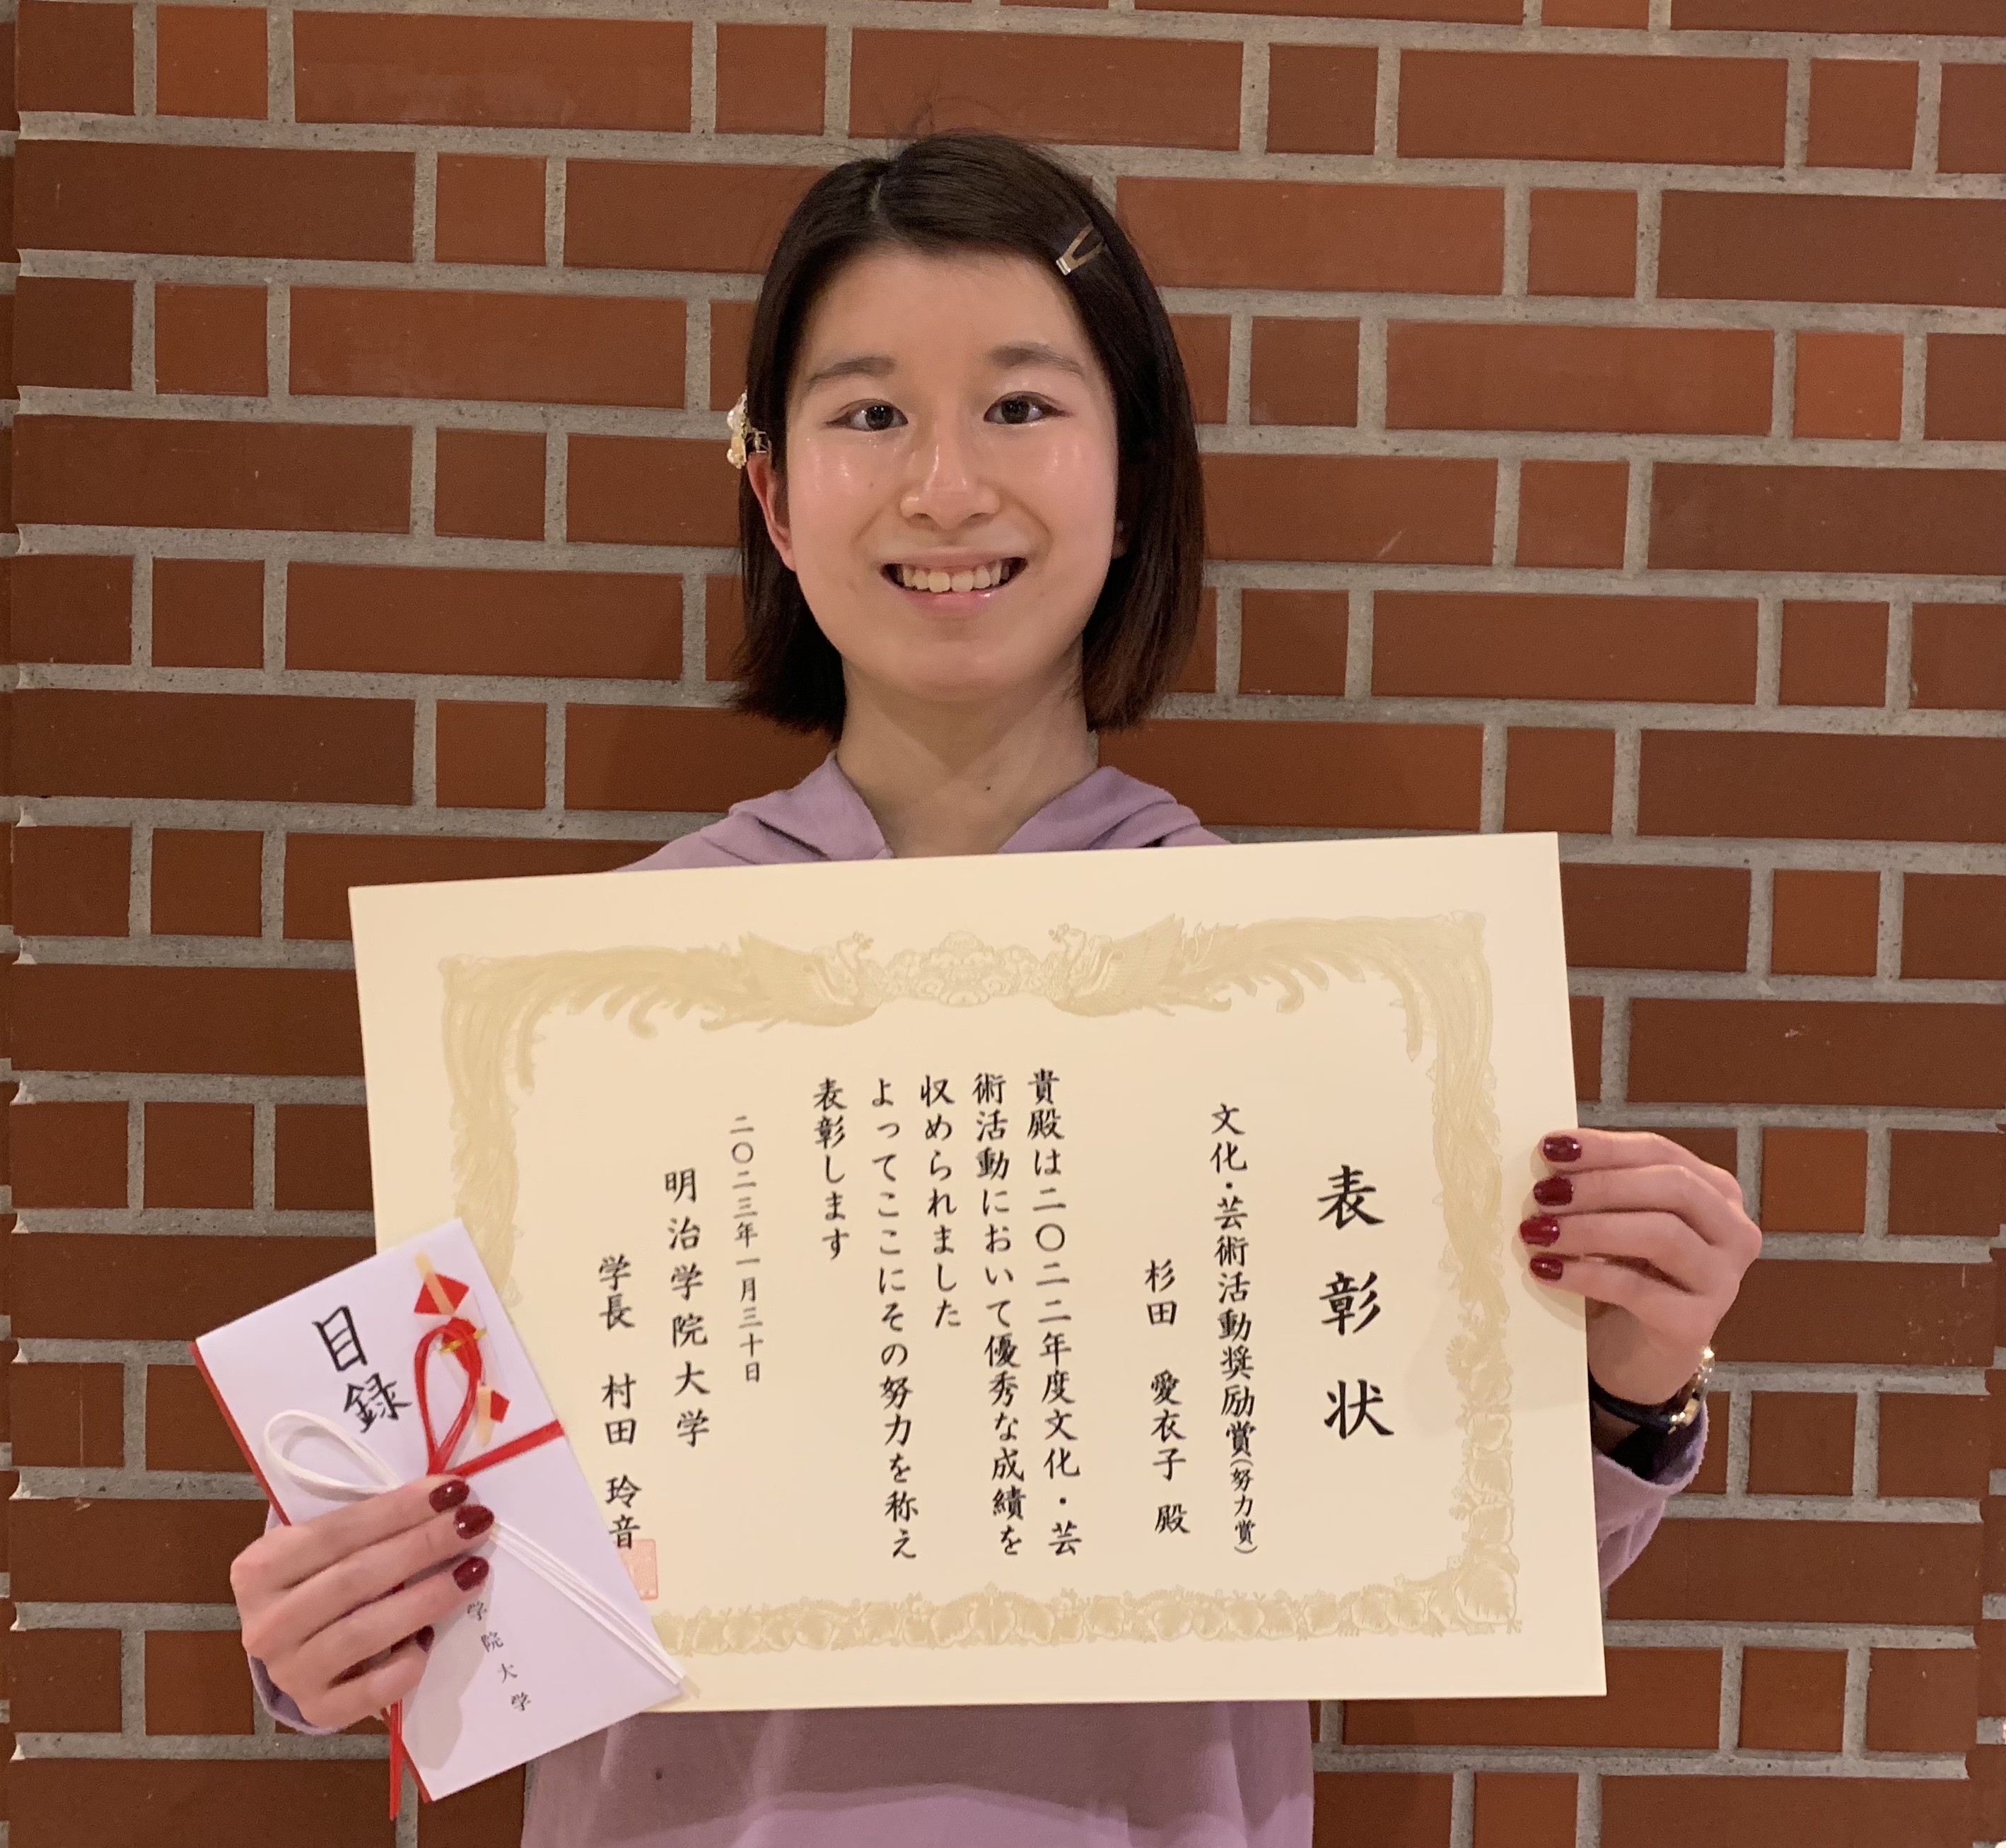 表彰状
文化・芸術活動奨励賞(努力賞)
杉田 愛衣子 殿
貴殿は二〇二二年度文化・芸
術活動において優秀な成績を
収められました
よってここにその努力を称え
表彰します
二〇二三年一月三十日
明治学院大学
学長 村田 玲音
目録
学院大学